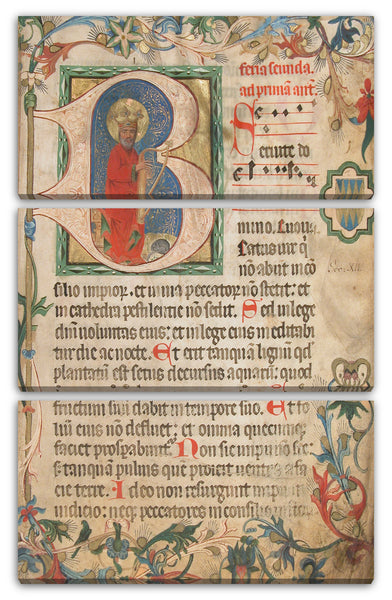 feria secunda.
ad primā ant̄.
Seruite do
mino.
atus uir q
nō abiit in cō
silio impioꝝ. et in uia peccatoꝝ nō stetit: et
in cathedra pestilentie nō sedit. Sed in lege
dn̄i uoluntas eius: et in lege eius meditabi
tur die ac nocte. Et erit tanquā lignū qd
plantatū est secus decursus aquarū: quod
fructum suū dabit in tempore suo. Et fo
lium eius nō defluet: et omnia quecunq;
faciet prosꝑabunt. Non sic impii nō
sic tanquā puluis quē proicit uentus a fa
cie terre. Ideo non resurgunt impii in
iudicio: neq; peccatores in consilio